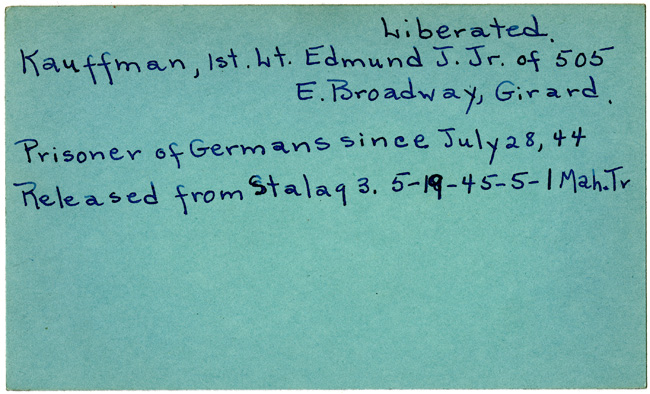 Liberated.
Kauffman, 1st. Lt. Edmund J. Jr. of 505
E. Broadway, Girard.
Prisoner of Germans since July 28, 44
Released from Stalag 3. 5-19-45-5-1 Mah.Tr